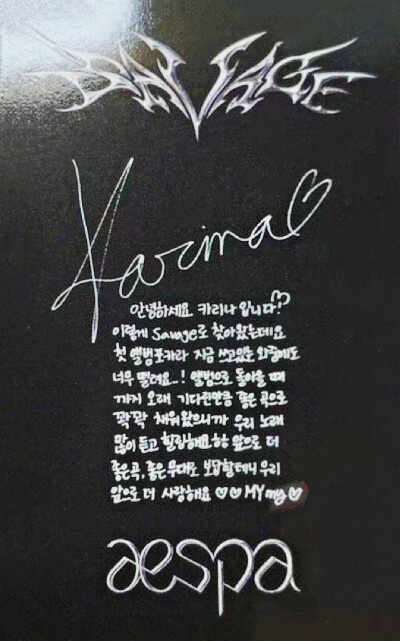 SAVAGE
Karina♡
안녕하세요 카리나 입니다!♡
이렇게 Savage로 찾아왔는데요
첫 앨범포카라 지금 쓰고있는 와중에도
너무 떨려요..! 앨범으로 돌아올 때
까지 오래 기다린만큼 좋은 곡으로
꽉꽉 채워왔으니까 우리 노래
많이 듣고 힐링해요ㅎㅎ 앞으로 더
좋은곡, 좋은무대로 보답할테니 우리
앞으로 더 사랑해요 ♡♡ MYmy♡
aespa